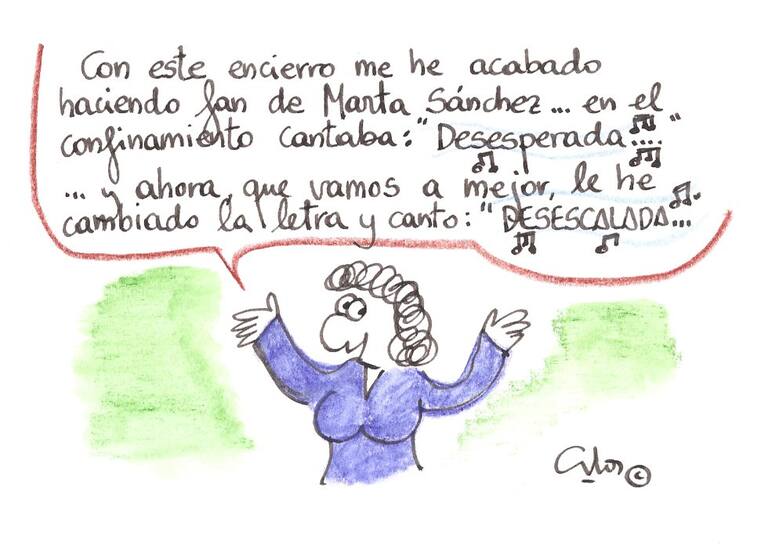 Con este encierro me he acabado
haciendo fan de Marta Sánchez... en el
confinamiento cantaba: "Desesperada...."
... y ahora, que vamos a mejor, le he
cambiado la letra y canto: "DESESCALADA...